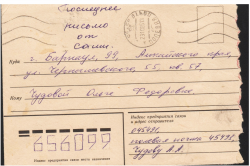 Последнее
письмо
от
Саши.
Куда г. Барнаул, 99, Алтайского края,
ул. Чернышевского, 55 кв 57
Кому Чудовой Ольге Федоровне
656099
Индекс предприятия связи места назначения
Индекс предприятия связи и адрес отправителя
полевая почта 45931
Чудову А.А.